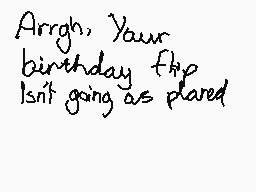 Arrgh, Your
birthday fhp
Isn't going as planed